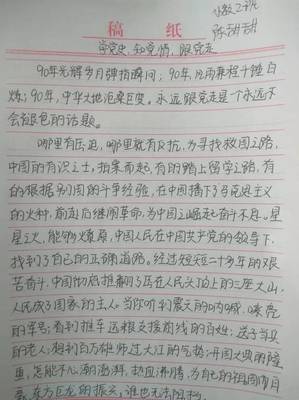 稿 纸
学党史、知党情、跟党走
90年光辉岁月弹指瞬间；90年，风雨兼程千锤百
炼；90年，中华大地沧桑巨变。永远跟党走是一个永远不
会褪色的话题。
哪里有压迫，哪里就有反抗，为寻找救国之路，
中国的有识之士，拍案而起，有的踏上留学之路，有
的根据别国的斗争经验，在中国播下了马克思主义
的火种，前赴后继闹革命，为中国之崛起奋斗不息。星
星之火，能够燎原，中国人民在中国共产党的领导下，
找到了自己的正确道路。经过短短二十多年的艰
苦奋斗，中国彻底推翻了压在人民头顶上的三座大山，
人民成了国家的主人。当你听到震天的呐喊，嘹亮
的军号；看到推车送粮支援前线的百姓；送子当兵
的老人；想到百万雄师过大江的气势；开国大典的隆
重，怎能不心潮澎湃，热血沸腾，为自己的祖国而自
豪，东方巨龙的振兴，谁也无法阻挡。